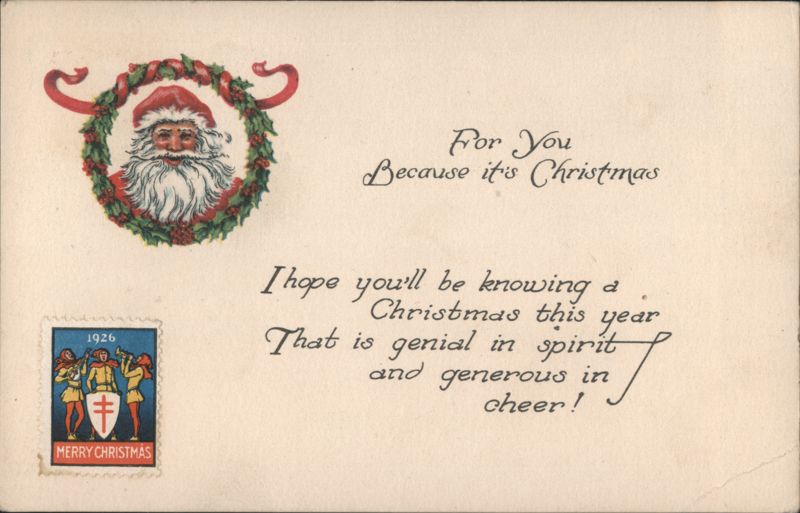 For You
Because it's Christmas
I hope you'll be knowing a
Christmas this year
That is genial in spirit
and generous in
cheer!
1926
MERRY CHRISTMAS